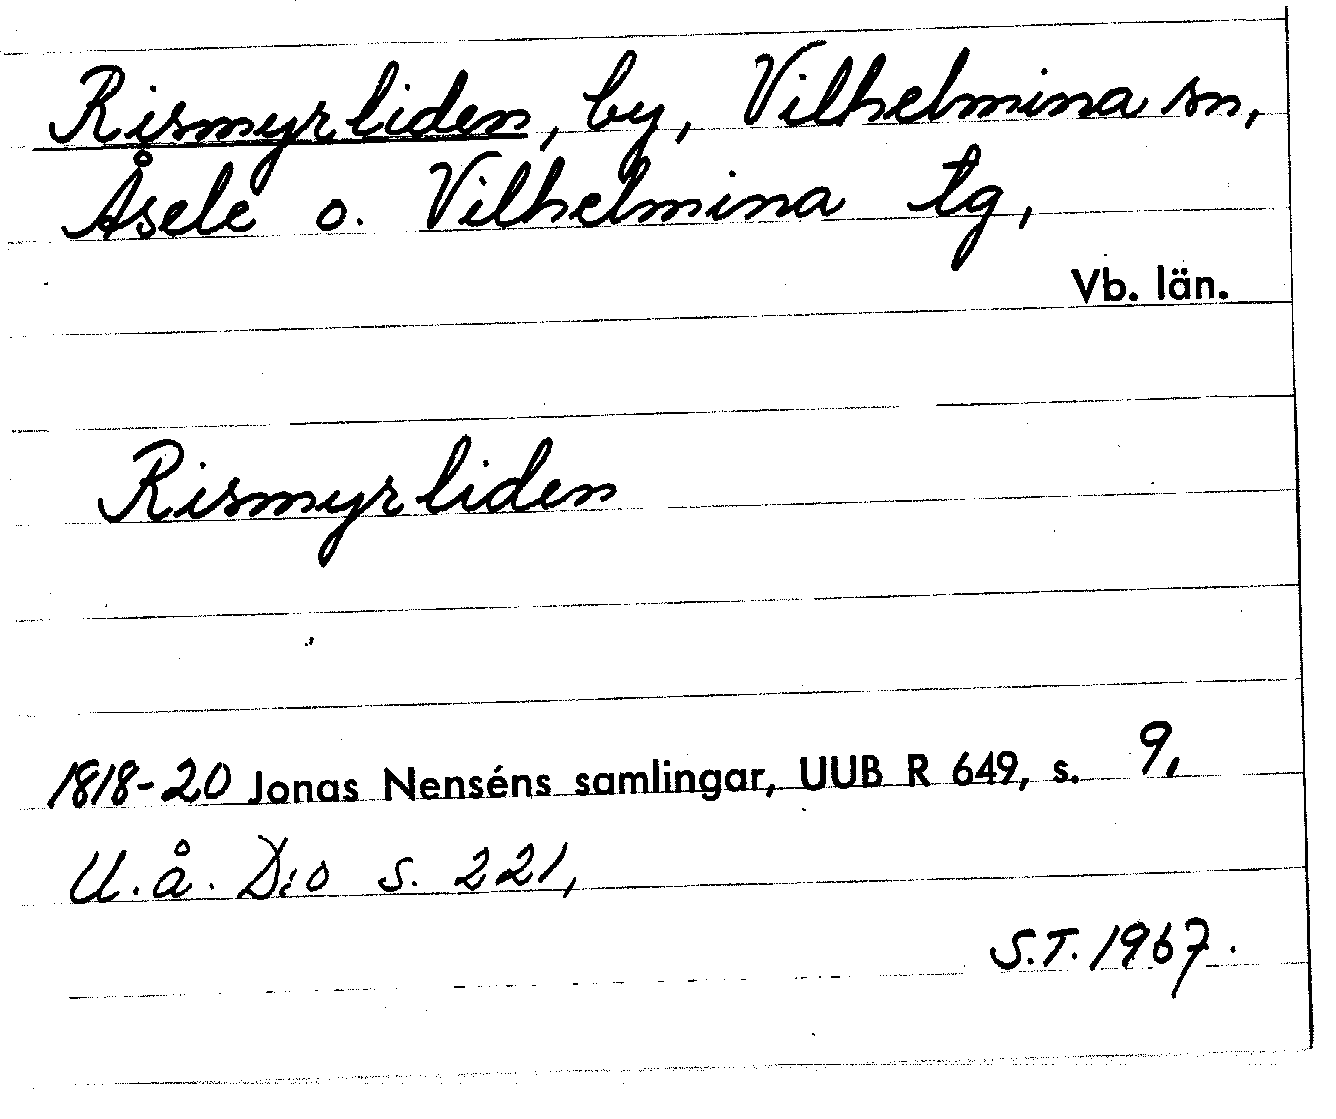 Rismyrliden, by, Vilhelmina sn,
Åsele o. Vilhelmina tg,
Vb. län.
Rismyrliden
1818-20 Jonas Nenséns samlingar, UUB R 649, s. 9,
U.å. D:o s. 221,
S.T. 1967.